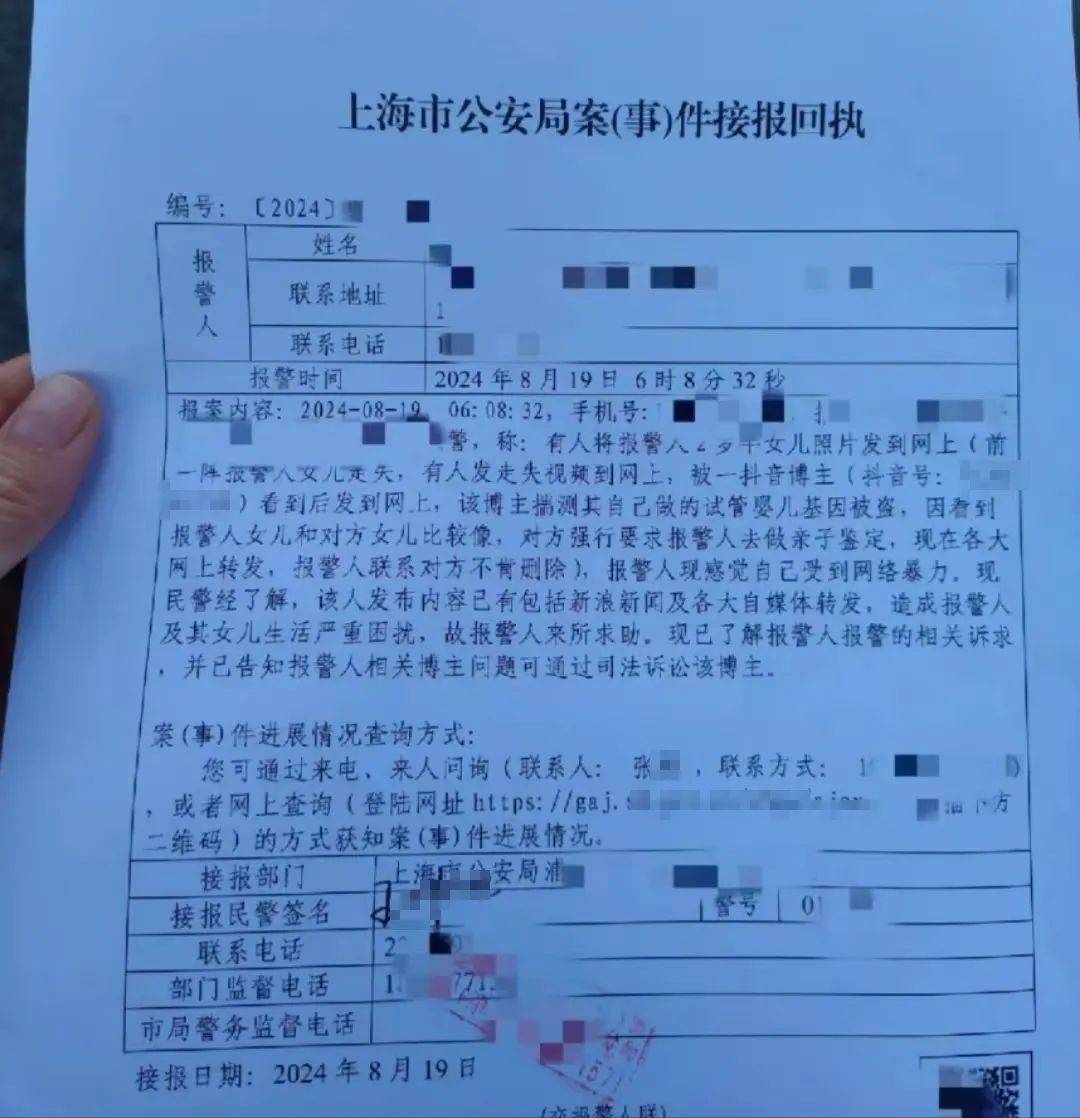 上海市公安局案(事)件接报回执
编号：〔2024〕
报警人
姓名
联系地址
1
联系电话
报警时间 2024 年 8 月 19 日 6 时 8 分 32 秒
报案内容：2024-08-19 06:08:32，手机号：
警，称：有人将报警人 2 岁半女儿照片发到网上（前
一阵报警人女儿走失，有人发走失视频到网上，被一抖音博主（抖音号：
）看到后发到网上，该博主揣测其自己做的试管婴儿基因被盗，因看到
报警人女儿和对方女儿比较像，对方强行要求报警人去做亲子鉴定，现在各大
网上转发，报警人联系对方不肯删除），报警人现感觉自己受到网络暴力。现
民警经了解，该人发布内容已有包括新浪新闻及各大自媒体转发，造成报警人
及其女儿生活严重困扰，故报警人来所求助。现已了解报警人报警的相关诉求
，并已告知报警人相关博主问题可通过司法诉讼该博主。
案(事)件进展情况查询方式：
您可通过来电、来人问询（联系人：张 ，联系方式：1 ）
，或者网上查询（登陆网址 https://gaj.s 方
二维码）的方式获知案(事)件进展情况。
接报部门 上海市公安局浦
接报民警签名 警号 01
联系电话 2
部门监督电话 1 771
市局警务监督电话
接报日期：2024 年 8 月 19 日
(交报警人联)